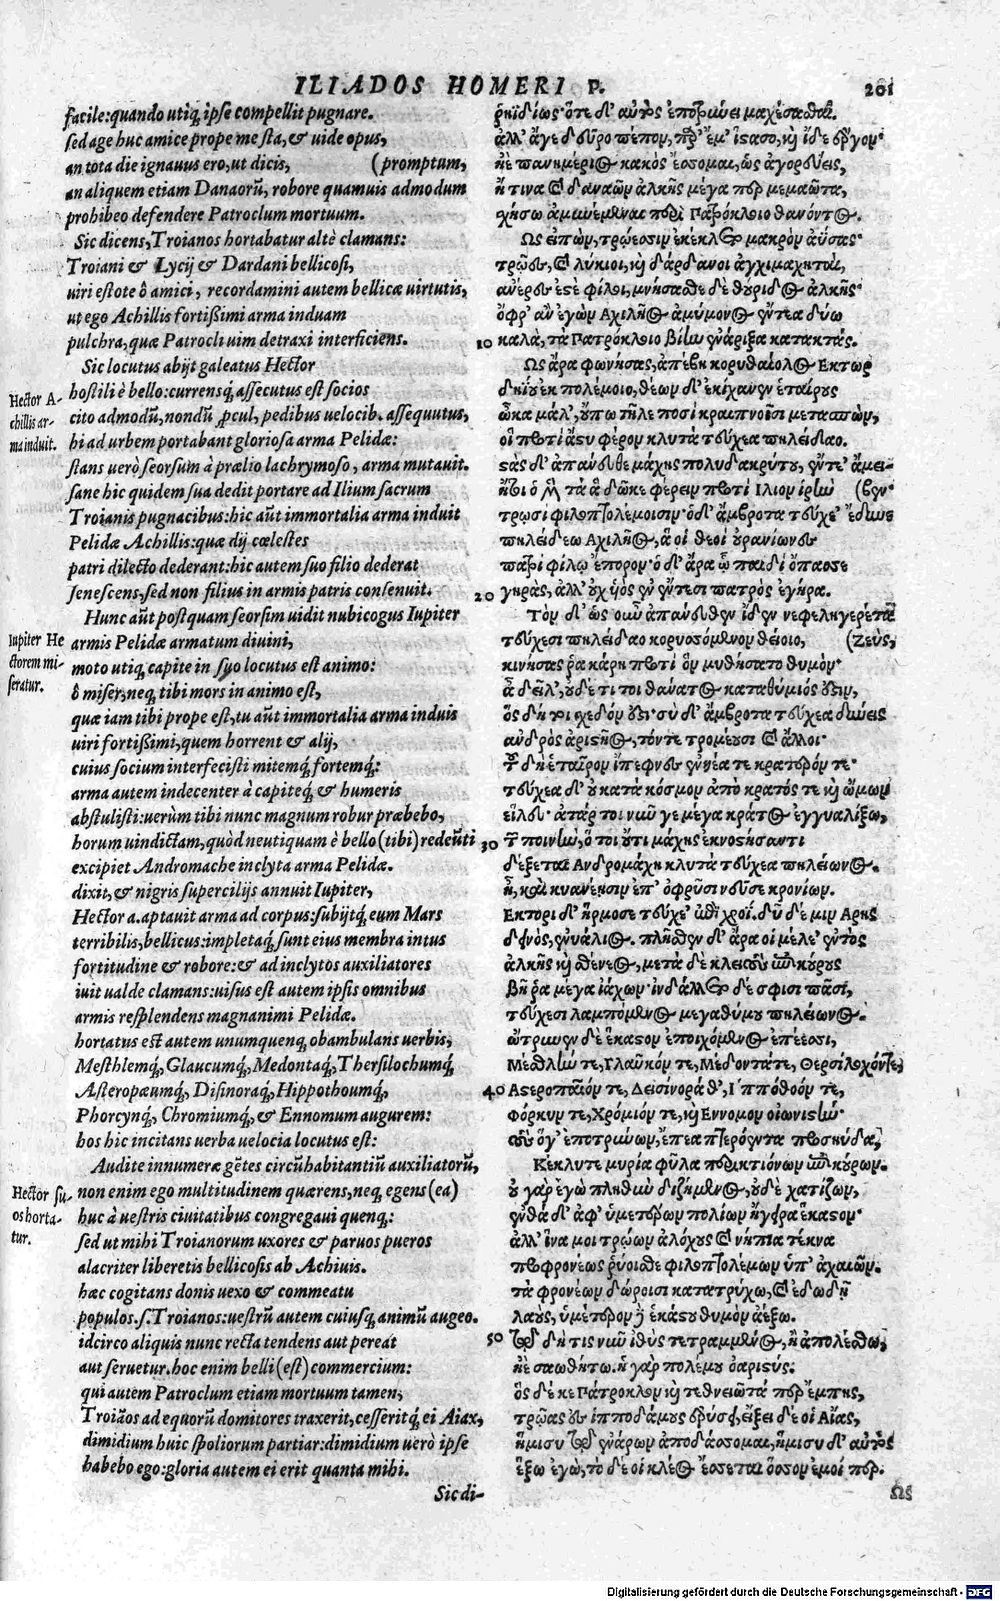 ILIADOS HOMERI P. 201
facile:quando utiq; ipse compellit pugnare.
sed age huc amice prope me sta, & uide opus,
an tota die ignauus ero, ut dicis, (promptum,
an aliquem etiam Danaorū, robore quamuis admodum
prohibeo defendere Patroclum mortuum.
Sic dicens, Troianos hortabatur altè clamans:
Troiani & Lycij & Dardani bellicosi,
uiri estote ô amici, recordamini autem bellicæ uirtutis,
ut ego Achillis fortißimi arma induam
pulchra, quæ Patrocli uim detraxi interficiens.
Sic locutus abijt galeatus Hector
Hector A-
chillis ar-
ma induit.
hostili è bello:currensq; assecutus est socios
cito admodū, nondū procul, pedibus uelocib. assequutus,
hi ad urbem portabant gloriosa arma Pelidæ:
stans uerò seorsum à prælio lachrymoso, arma mutauit.
sane hic quidem sua dedit portare ad Ilium sacrum
Troianis pugnacibus:hic aūt immortalia arma induit
Pelidæ Achillis:quæ dij cœlestes
patri dilecto dederant:hic autem suo filio dederat
senescens, sed non filius in armis patris consenuit.
Hunc aūt postquam seorsim uidit nubicogus Iupiter
Iupiter He
ctorem mi-
seratur.
armis Pelidæ armatum diuini,
moto utiq; capite in suo locutus est animo:
ô miser, neq; tibi mors in animo est,
quæ iam tibi prope est, tu aūt immortalia arma induis
uiri fortißimi, quem horrent & alij,
cuius socium interfecisti mitemq; fortemq;:
arma autem indecenter à capiteq; & humeris
abstulisti:uerùm tibi nunc magnum robur præbebo,
horum uindictam, quòd neutiquam è bello (tibi) redeūti
excipiet Andromache inclyta arma Pelidæ.
dixit, & nigris supercilijs annuit Iupiter,
Hector a. aptauit arma ad corpus:subijtq; eum Mars
terribilis, bellicus:impletaq; sunt eius membra intus
fortitudine & robore:& ad inclytos auxiliatores
iuit ualde clamans:uisus est autem ipsis omnibus
armis resplendens magnanimi Pelidæ.
hortatus est autem unumquenq; obambulans uerbis,
Mesthlemq;, Glaucumq;, Medontaq;, Thersilochumq;,
Asteropæumq;, Disinoraq;, Hippothoumq;,
Phorcynq;, Chromiumq;, & Ennomum augurem:
hos hic incitans uerba uelocia locutus est:
Audite innumeræ gētes circūhabitantiū auxiliatorū,
Hector su-
os horta-
tur.
non enim ego multitudinem quærens, neq; egens (ea)
huc à uestris ciuitatibus congregaui quenq;:
sed ut mihi Troianorum uxores & paruos pueros
alacriter liberetis bellicosis ab Achiuis.
hæc cogitans donis uexo & commeatu
populos.s. Troianos:uestrū autem cuiusq; animū augeo.
idcirco aliquis nunc recta tendens aut pereat
aut seruetur. hoc enim belli (est) commercium:
qui autem Patroclum etiam mortuum tamen,
Troiāos ad equorū domitores traxerit, cesseritq; ei Aiax,
dimidium huic spoliorum partiar:dimidium uerò ipse
habebo ego:gloria autem ei erit quanta mihi.
Sic di-
ῥηϊδίως· ὅτε δ' αὐτὸς ἐποτρύνει μαχέσασθαι.
ἀλλ' ἄγε δεῦρο πέπον, παρ' ἔμ' ἵστασο, καὶ ἴδε ἔργον·
ἠὲ πανημέριος κακὸς ἔσσομαι, ὡς ἀγορεύεις,
ἤ τινα καὶ δαναῶν ἀλκῆς μέγα περ μεμαῶτα,
σχήσω ἀμυνέμεναι περὶ Πατρόκλοιο θανόντος.
Ως εἰπὼν, τρώεσσιν ἐκέκλετο μακρὸν ἀΰσας·
τρῶες, καὶ λύκιοι, καὶ δάρδανοι ἀγχιμαχηταὶ,
ἀνέρες ἐστὲ φίλοι, μνήσασθε δὲ θούριδος ἀλκῆς·
ὄφρ' ἂν ἐγὼν Αχιλῆος ἀμύμονος ἔντεα δύω
10 καλὰ, τὰ Πατρόκλοιο βίην ἐνάριξα κατακτάς.
Ως ἄρα φωνήσας, ἀπέβη κορυθαίολος Εκτωρ
δηΐου ἐκ πολέμοιο, θέων δ' ἐκίχανεν ἑταίρους
ὦκα μάλ', οὔπω τῆλε ποσὶ κραιπνοῖσι μετασπὼν,
οἳ προτὶ ἄστυ φέρον κλυτὰ τεύχεα πηλείδαο.
στὰς δ' ἀπάνευθε μάχης πολυδακρύτου, ἔντε' ἄμει-
ἤτοι ὁ μὲν τὰ ἃ δῶκε φέρειν προτὶ Ιλιον ἱρὴν (βεν·
τρωσὶ φιλοπτολέμοισιν· ὁ δ' ἄμβροτα τεύχε' ἔδυνε
πηλείδεω Αχιλῆος, ἅ οἱ θεοὶ οὐρανίωνες
πατρὶ φίλῳ ἔπορον· ὁ δ' ἄρα ᾧ παιδὶ ὄπασσε
20 γηρὰς, ἀλλ' οὐχ υἱὸς ἐν ἔντεσι πατρὸς ἐγήρα.
Τὸν δ' ὡς οὖν ἀπάνευθεν ἴδεν νεφεληγερέτα
τεύχεσι πηλείδαο κορυσσόμενον θείοιο, (Ζεύς,
κινήσας ῥα κάρη προτὶ ὃν μυθήσατο θυμόν·
ἆ δεῖλ', οὐδέ τι τοι θάνατος καταθύμιός ἐστιν,
ὃς δή τοι σχεδόν ἐστι· σὺ δ' ἄμβροτα τεύχεα δύνεις
ἀνδρὸς ἀριστῆος, τόντε τρομέουσι καὶ ἄλλοι·
τοῦ δὴ ἑταῖρον ἔπεφνες ἐνηέα τε κρατερόν τε·
τεύχεα δ' οὐ κατὰ κόσμον ἀπὸ κρατός τε καὶ ὤμων
εἵλευ· ἀτάρ τοι νῦν γε μέγα κράτος ἐγγυαλίξω,
30 τῶν ποινὴν, ὅ τοι οὔτι μάχης ἐκνοστήσαντι
δέξεται Ανδρομάχη κλυτὰ τεύχεα πηλείωνος.
ἦ, καὶ κυανέῃσιν ἐπ' ὀφρύσι νεῦσε κρονίων.
Εκτορι δ' ἥρμοσε τεύχε' ἐπὶ χροΐ. δῦ δέ μιν Αρης
δεινὸς, ἐνυάλιος. πλῆσθεν δ' ἄρα οἱ μέλε' ἐντὸς
ἀλκῆς καὶ σθένεος, μετὰ δὲ κλειτοὺς ἐπικούρους
βῆ ῥα μέγα ἰάχων· ἰνδάλλετο δέ σφισι πᾶσι,
τεύχεσι λαμπόμενος μεγαθύμου πηλείωνος.
ὤτρυνεν δὲ ἕκαστον ἐποιχόμενος ἐπέεσσι,
Μέσθλην τε, Γλαῦκόν τε, Μέδοντάτε, Θερσίλοχόντε,
40 Αστεροπαῖόν τε, Δεισήνορά θ', Ιππόθοόν τε,
φόρκυν τε, Χρόμιόν τε, καὶ Εννομον οἰωνιστήν·
τοὺς ὅγ' ἐποτρύνων, ἔπεα πτερόεντα προσηύδα,
Κέκλυτε μυρία φῦλα περικτιόνων ἐπικούρων.
οὐ γὰρ ἐγὼ πληθὺν διζήμενος, οὐδὲ χατίζων,
ἐνθάδ' ἀφ' ὑμετέρων πολίων ἤγειρα ἕκαστον·
ἀλλ' ἵνα μοι τρώων ἀλόχους καὶ νήπια τέκνα
προφρονέως ῥύοισθε φιλοπτολέμων ὑπ' ἀχαιῶν.
τὰ φρονέων δώροισι κατατρύχω, καὶ ἐδωδῇ
λαοὺς, ὑμέτερον δὲ ἑκάστου θυμὸν ἀέξω.
50 τῷ δή τις νῦν ἰθὺς τετραμμένος, ἢ ἀπολέσθω,
ἠὲ σαωθήτω. ἡ γὰρ πολέμου ὀαριστύς.
ὃς δέ κε Πάτροκλον καὶ τεθνειῶτά περ ἔμπης,
τρῶας ἐς ἱπποδάμους ἐρύσῃ, εἴξει δέ οἱ Αἴας,
ἥμισυ τῷ ἐνάρων ἀποδάσσομαι, ἥμισυ δ' αὐτὸς
ἕξω ἐγώ, τὸ δέ οἱ κλέος ἔσσεται ὅσσον ἐμοί περ.
Ως
Digitalisierung gefördert durch die Deutsche Forschungsgemeinschaft - DFG